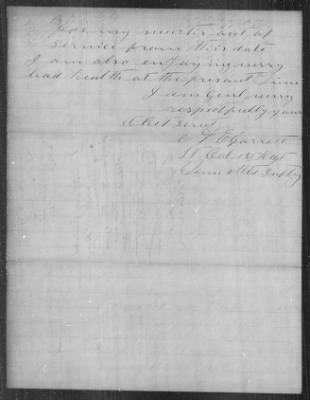 for my muster out of
service from this date
I am also enjoying verry
bad health at the present time
I am Genl verry
respectfully your
Obet Servt
Garrett
Lt Col Regt
Tenn Mtd Infty